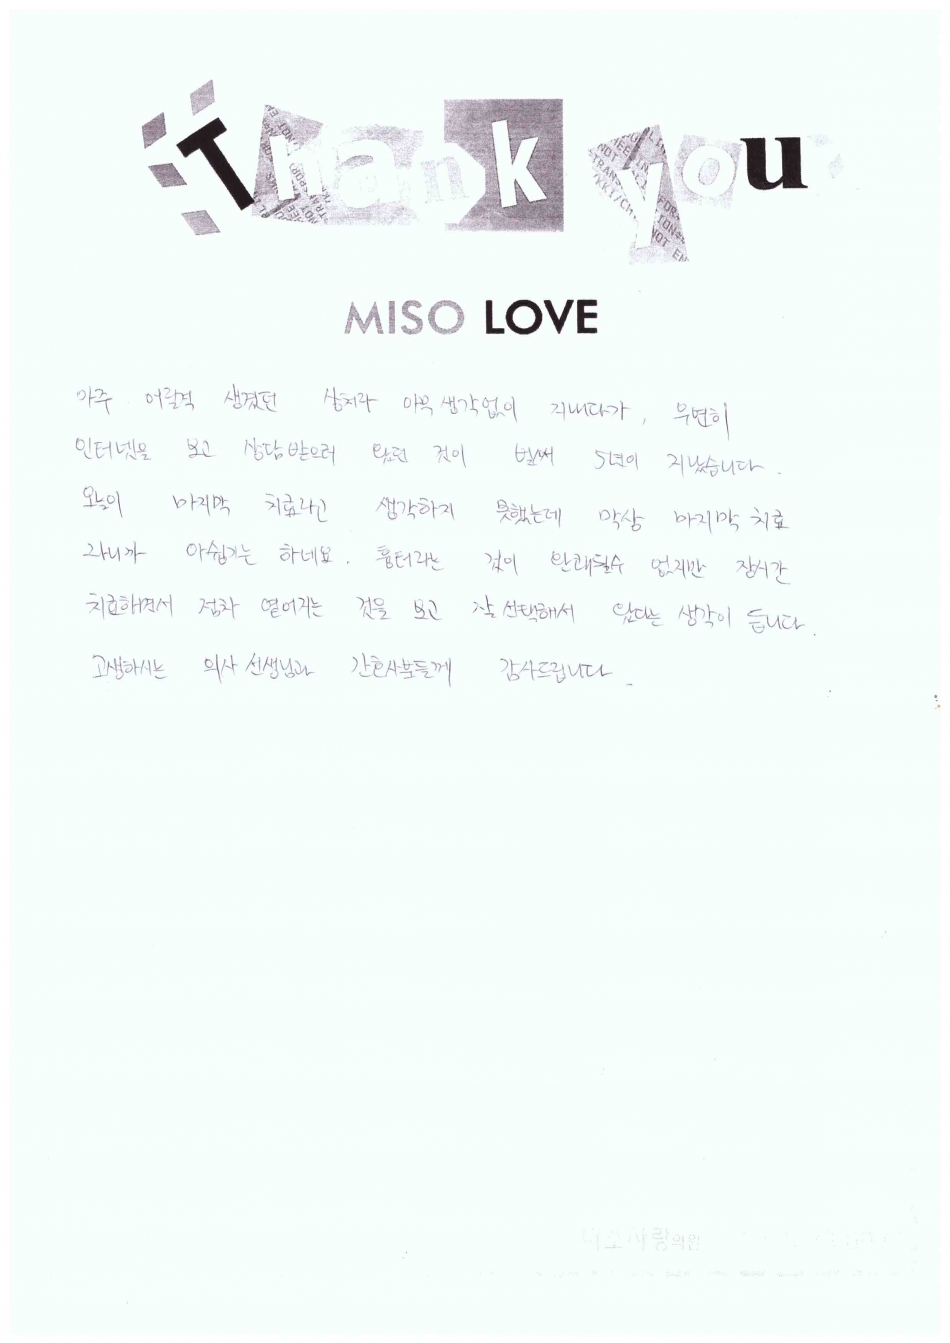 Thank you
MISO LOVE
아주 어릴적 생겼던 상처라 아무생각없이 지내다가, 우연히
인터넷을 보고 상담받으러 왔던 것이 벌써 5년이 지났습니다.
오늘이 마지막 치료라고 생각하지 못했는데 막상 마지막 치료
라니까 아쉽기는 하네요. 흉터라는 것이 완쾌될수 없지만 장시간
치료하면서 점차 옅어지는 것을 보고 잘 선택해서 왔다는 생각이 듭니다.
고생하시는 의사 선생님과 간호사분들께 감사드립니다.